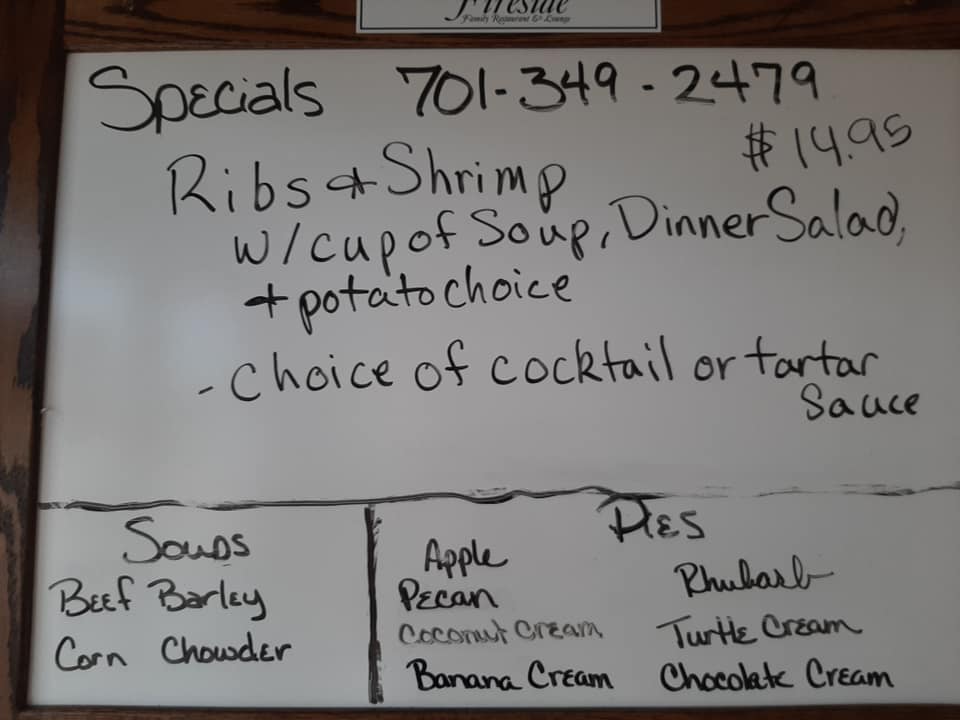 Fireside
Family Restaurant & Lounge
Specials 701-349-2479
$14.95
Ribs & Shrimp
w/cup of Soup, Dinner Salad,
& potato choice
- Choice of cocktail or tartar
Sauce
Soups
Beef Barley
Corn Chowder
Pies
Apple
Pecan
Coconut Cream
Banana Cream
Rhubarb
Turtle Cream
Chocolate Cream